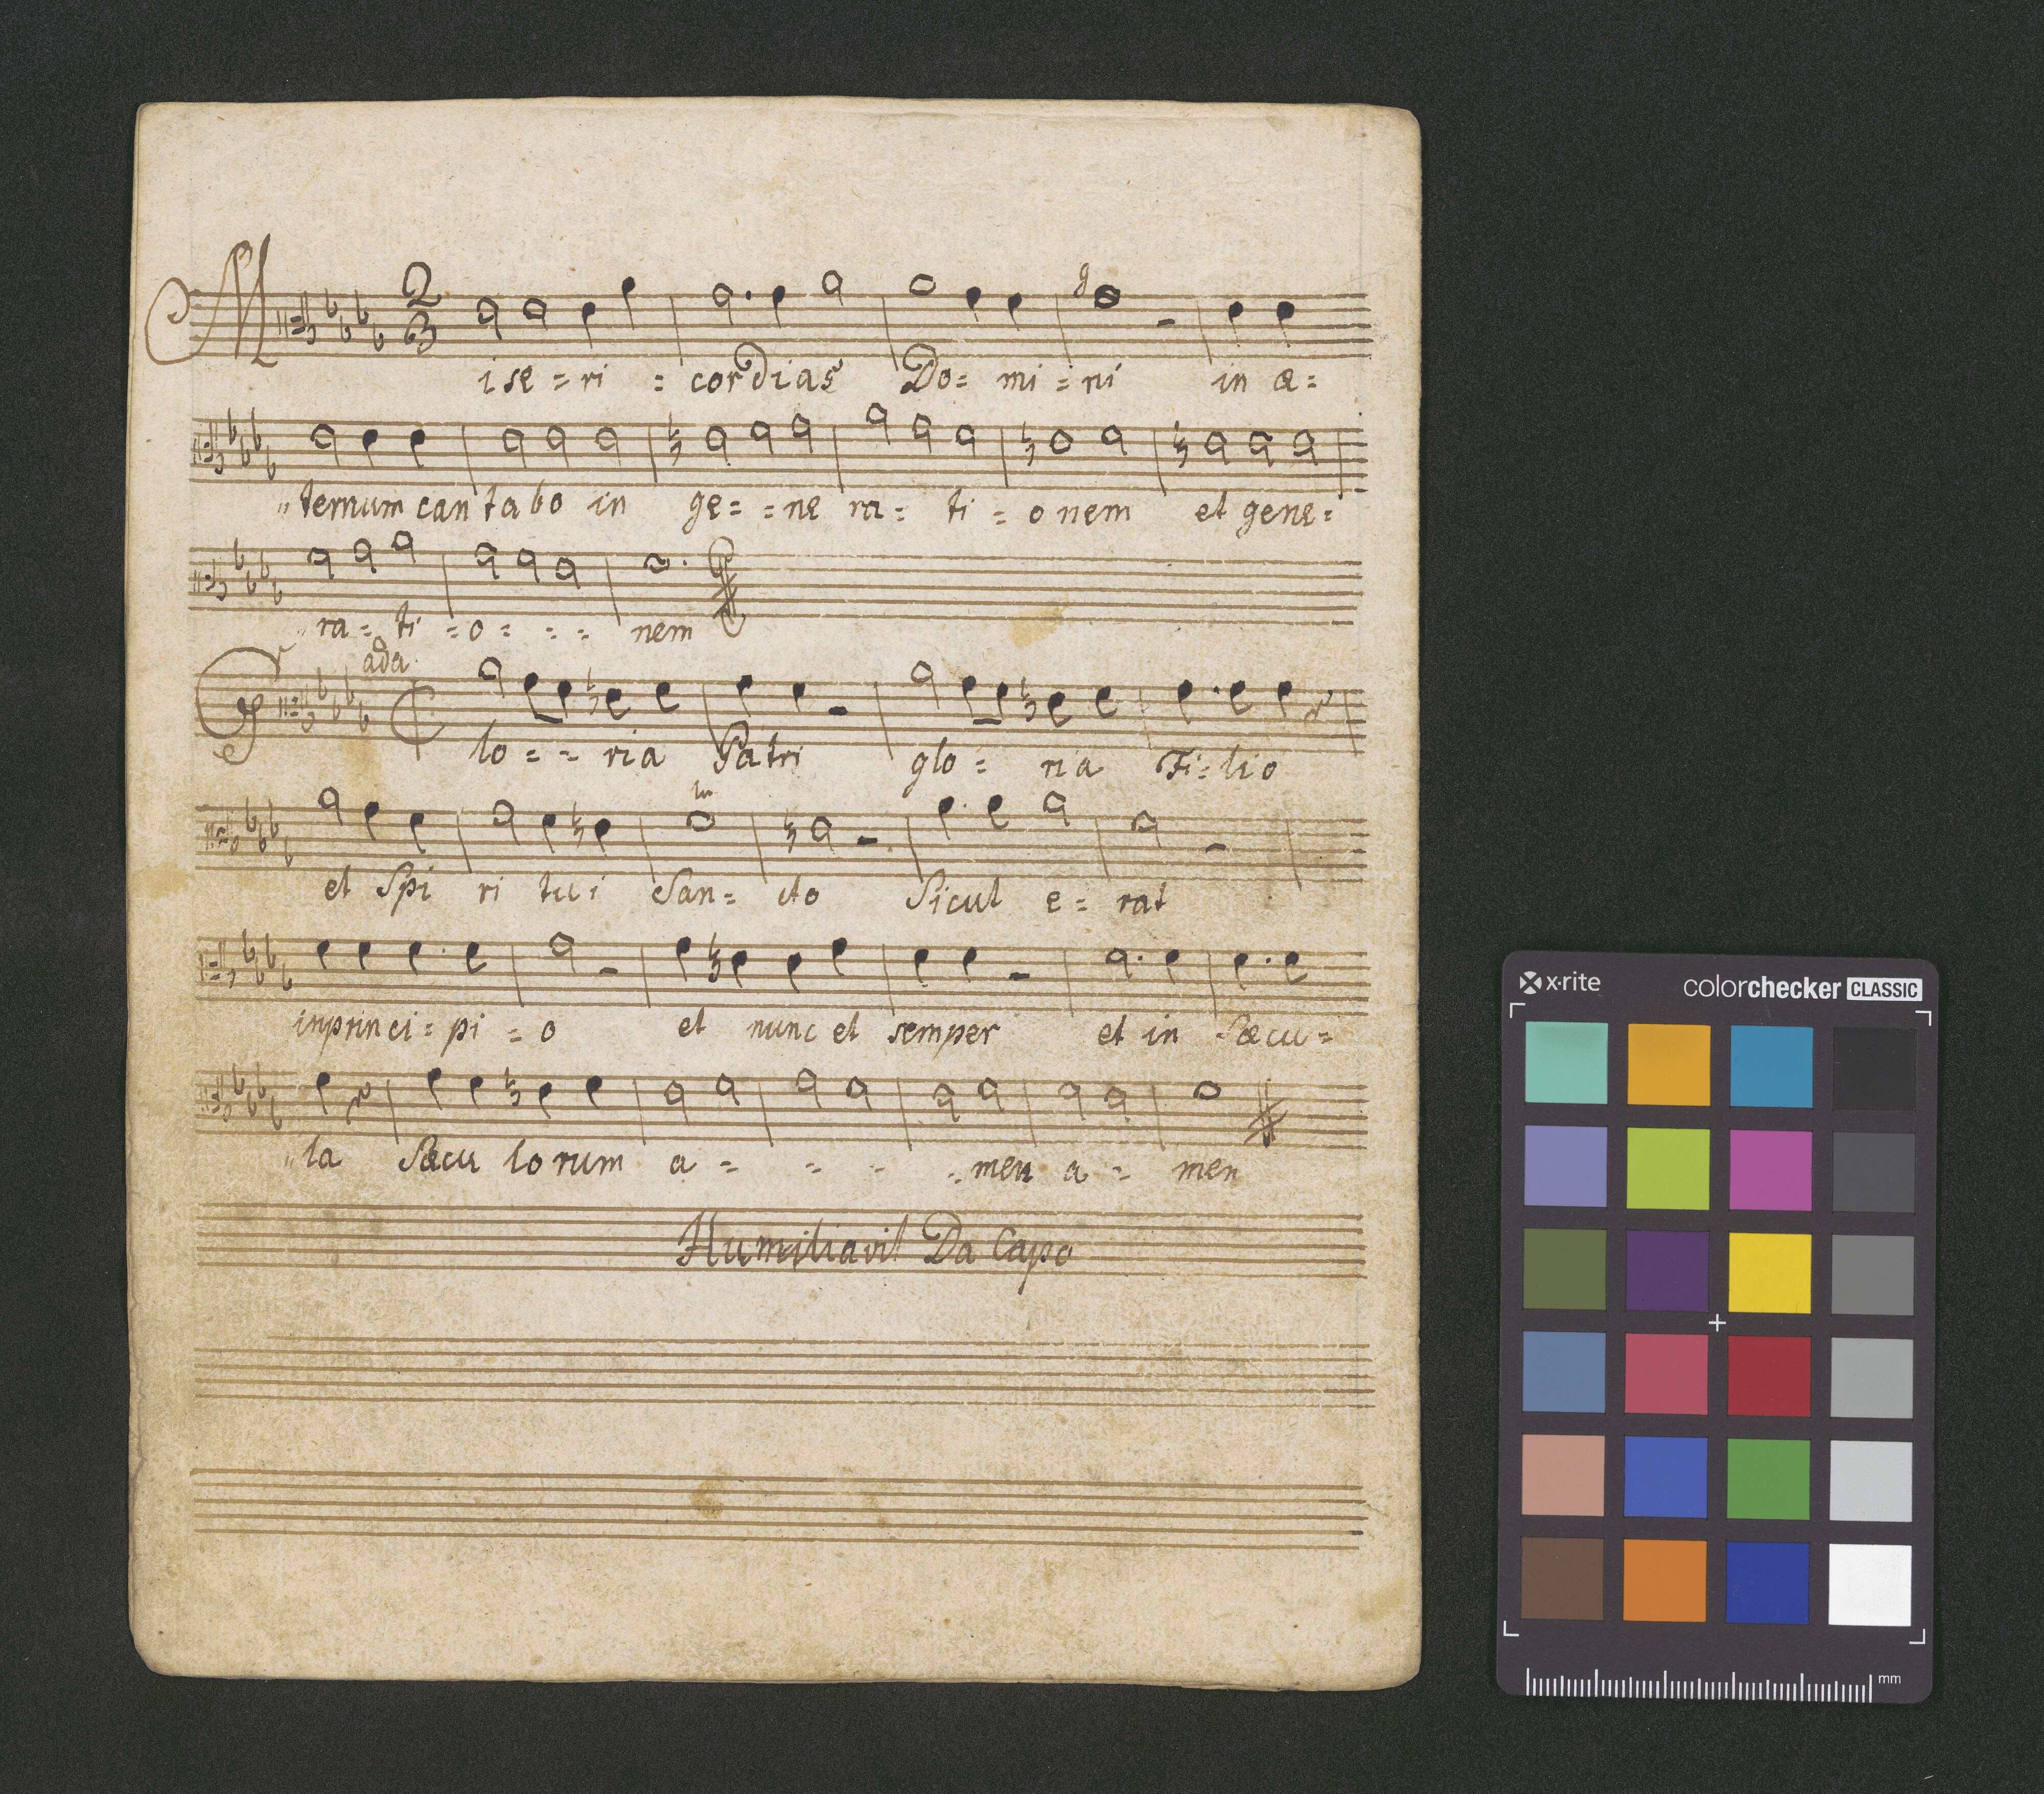 M 2 3
i se = ri = cor dias Do = mi = ni in æ =
„ ternum can ta bo in ge = = ne ra = ti = o nem et gene =
„ ra = ti = o = = = nem
ada.
G lo = = ria Patri glo = ria Fi = lio
et Spi ri tui San = cto Sicut e = rat
in prin ci = pi = o et nunc et semper et in Sæcu =
„ la Sæcu lo rum a = = = = men a = men
Humiliavit Da Capo
x·rite colorchecker CLASSIC
mm